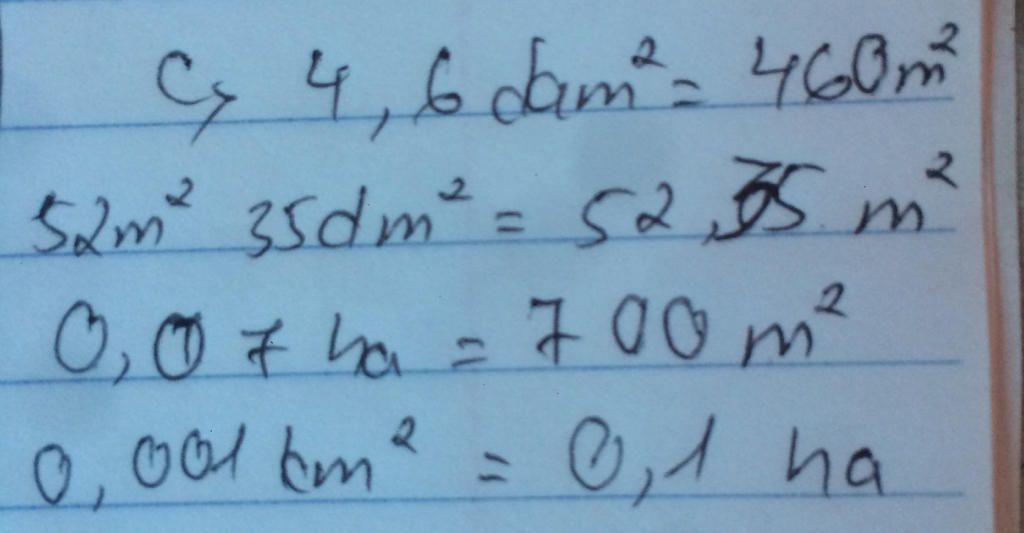 C, 4,6 dam² = 460m²
52m² 35dm² = 52,35 m²
0,07 ha = 700 m²
0,001 km² = 0,1 ha